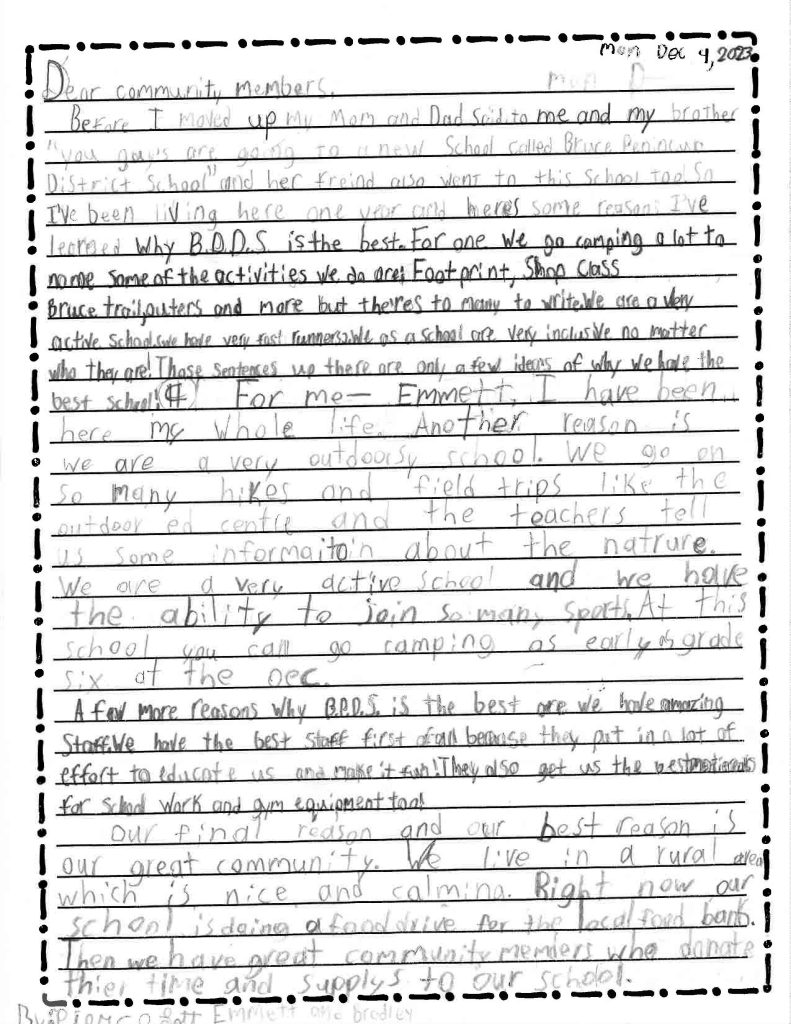 Mon Dec 4, 2023
Dear community members,
Before I moved up my Mom and Dad said to me and my brother
"you guys are going to a new School called Bruce Peninsula
District School" and her freind also went to this School too! So
I've been living here one year and heres some reasons I've
learned why B.P.D.S. is the best. For one we go camping a lot to
name some of the activities we do are: Footprint, Shop Class
Bruce trail, outers and more but theres to many to write. We are a very
active school, we have very fast runners. We as a school are very inclusive no matter
who they are! Those sentences up there are only a few ideas of why we have the
best school! For me— Emmett, I have been
here my whole life. Another reason is
we are a very outdoorsy school. We go on
so many hikes and field trips like the
outdoor ed centre and the teachers tell
us some informaitoin about the natrure.
We are a very active school and we have
the ability to join so many sports. At this
school you can go camping as early as grade
six at the oec.
A few more reasons why B.P.D.S. is the best are we have amazing
Staff. We have the best staff first of all because they put in a lot of
effort to educate us and make it fun! They also get us the best materials
for school work and gym equipment too!
Our final reason and our best reason is
our great community. We live in a rural area
which is nice and calming. Right now our
school is doing a food drive for the local food bank.
Then we have great community members who donate
thier time and supplys to our school.
By: Emmett and Bradley